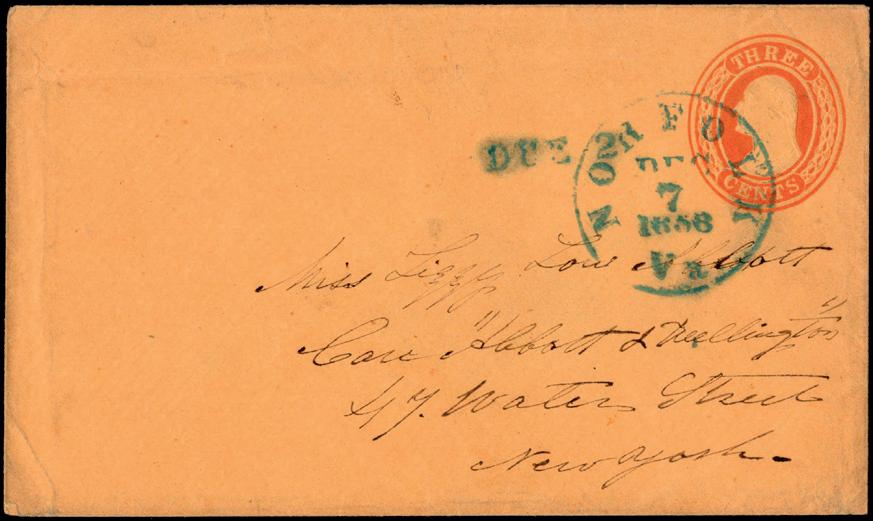 THREE
CENTS
DUE 2
NORFOLK
DEC
7
1858
Va
Miss Lizzy Low Abbott
Care "Abbott &
47. Water Street
New York.